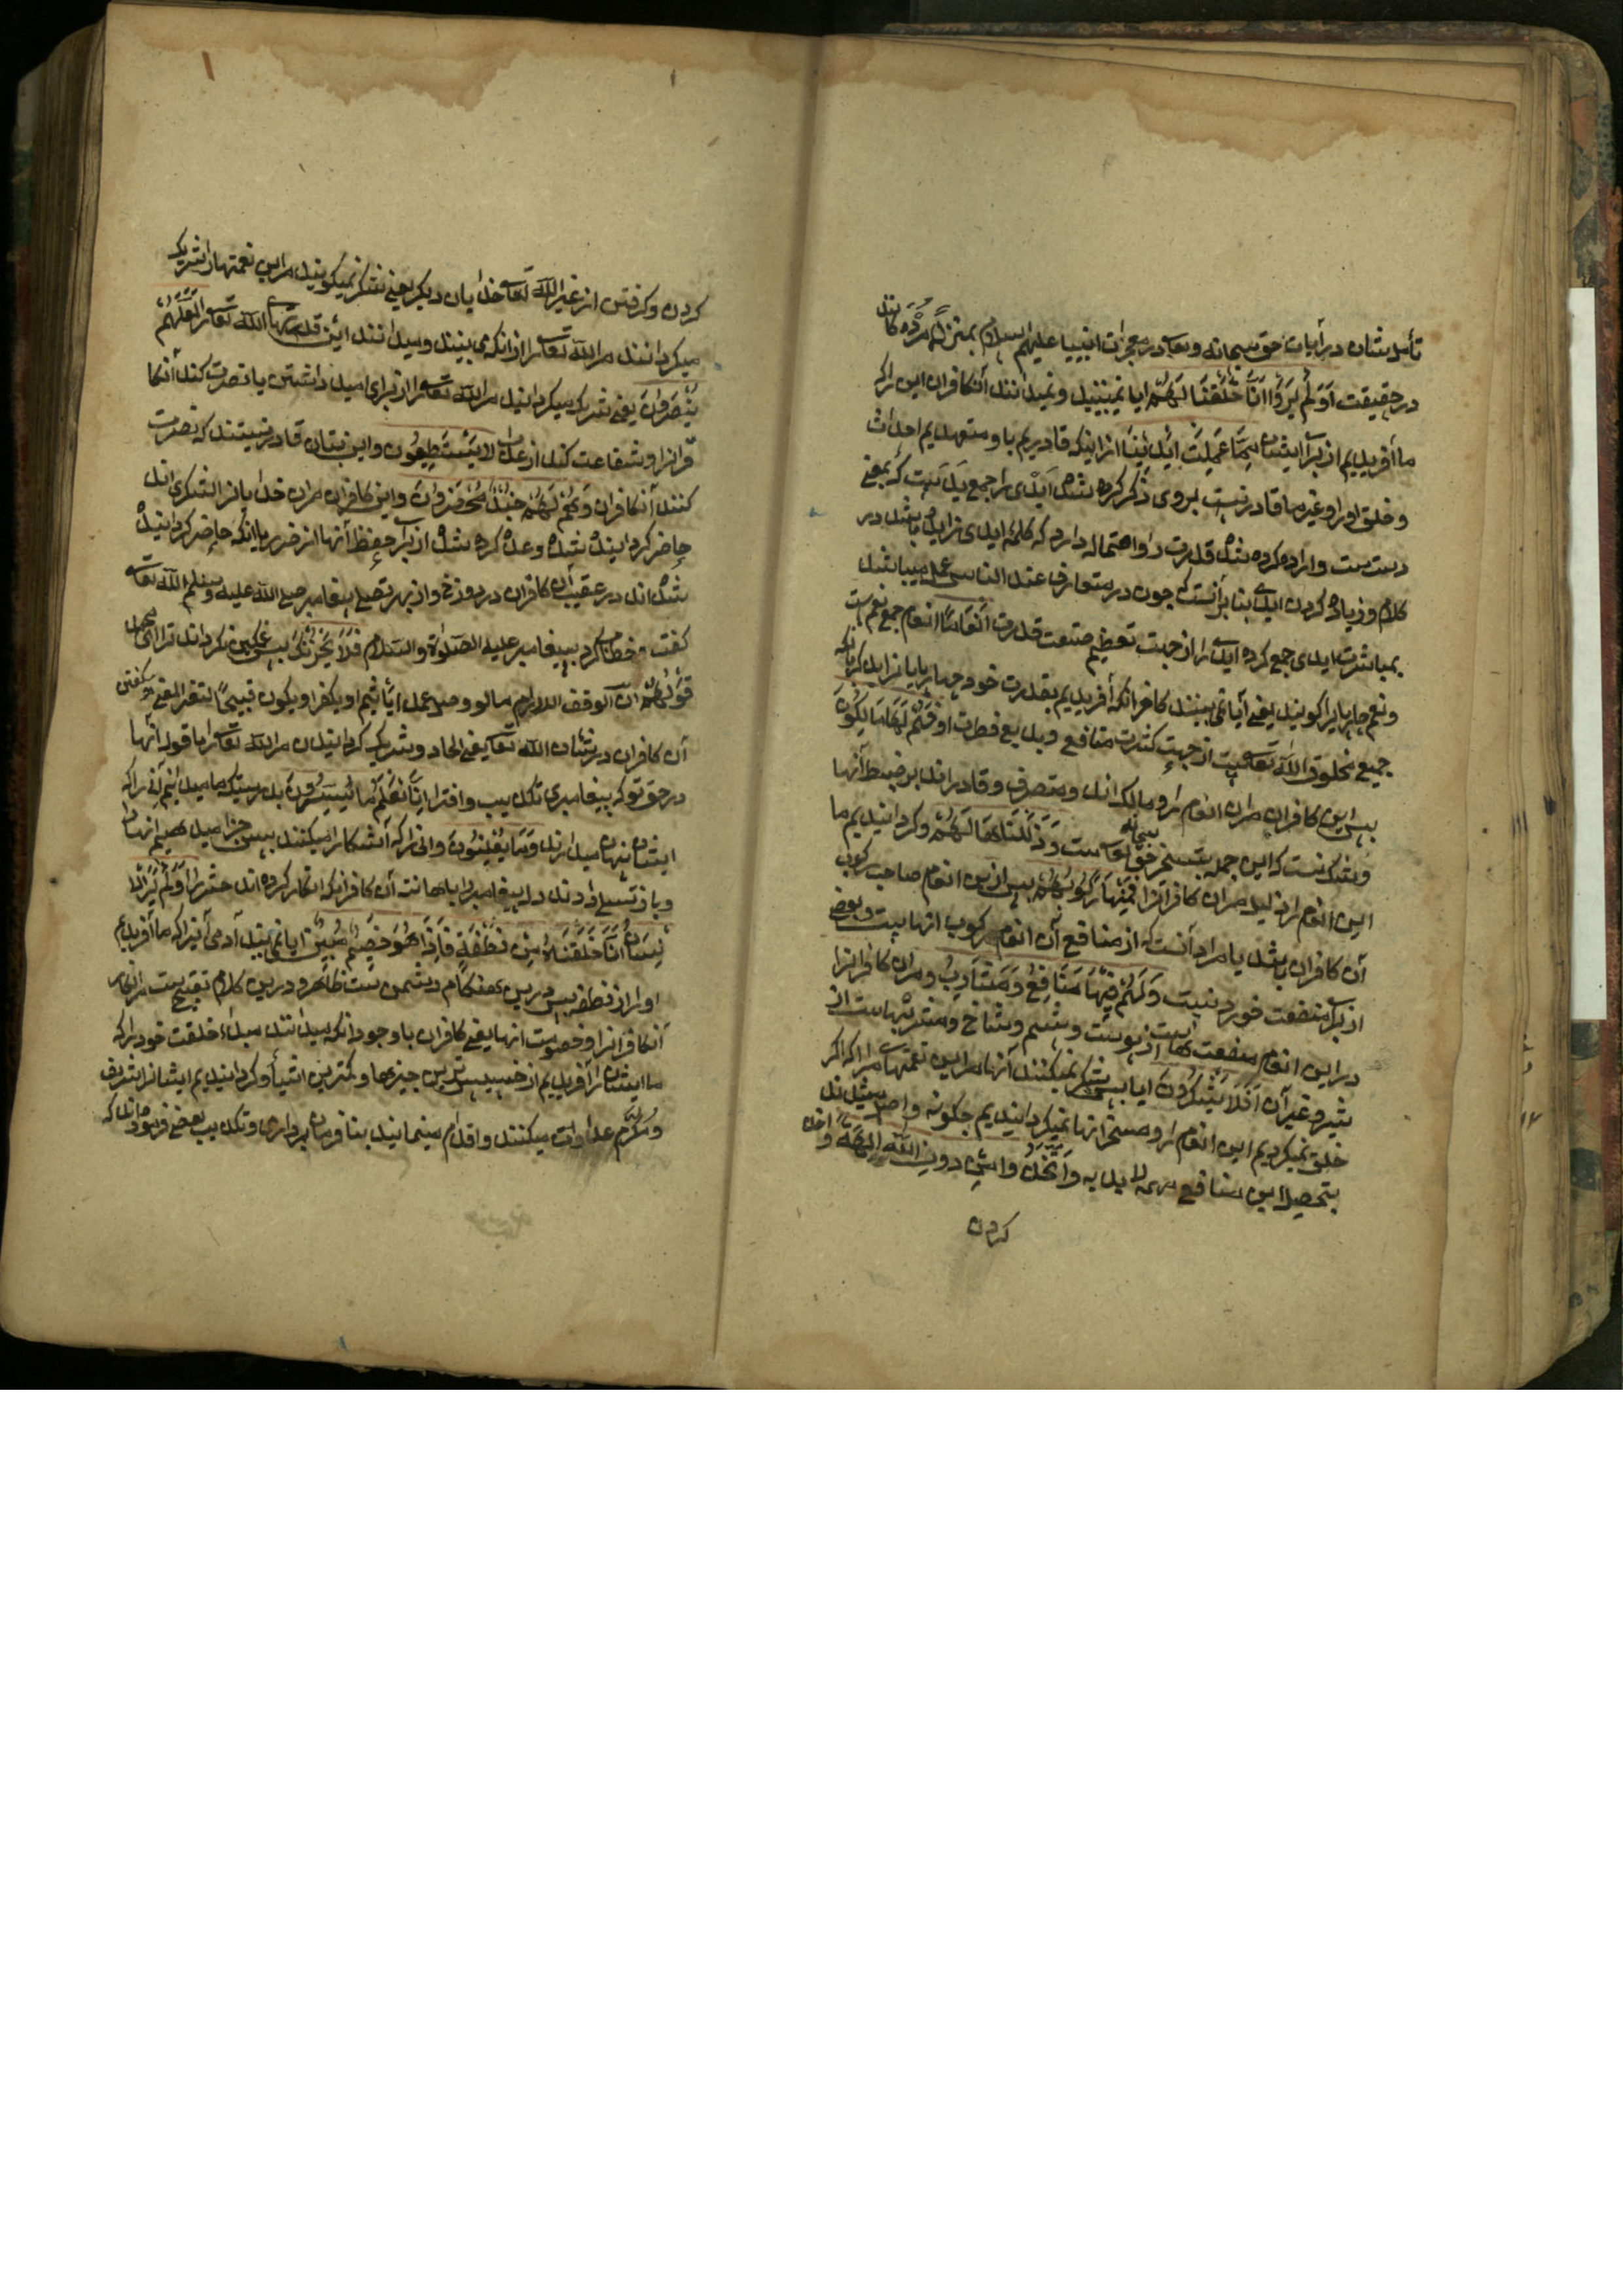 تأمل شان در آیات حق سبحانه وتعا در معجزات انبیا علیهم السلام بمنزله مرده کانند
در حقیقت اَوَلَمْ یَرَوْا اَنَّا خَلَقْنَا لَهُمْ ایا نمیبینید و نمیدانند آنکافران این را که
ما آفریدیم از برا ایشان مِمَّا عَمِلَتْ اَیْدِینَا از اینکه قادریم با و متعهدیم احداث
و خلق او را و غیر ما قادر نیست بروی ذکر کرده شده ایدی را جمع ید است که بمعنی
دست ست واراده کرده شده قدرت را و احتماله دارد که کلمه ایدی زایده باشد در
کلام و زیاده کردن ایدی بنا بر آنست که چون در متعارف عند الناس عمل میباشد
بمباشرت ایدی جمع کرده ایدی را از جهت تعظیم صنعت قدرت اَنْعَامًا انعام جمع نعم ست
ونعم چارپایرا کویند یعنی آیا نمی بینند کافران که آفریدیم بقدرت خود چارپایانرا
جمیع مخلوق الله تعا است از جهت کثرت منافع و بدایع فطرت او فَهُمْ لَهَا مَالِکُونَ
پس این کافران مران انعام را مالک اند و متصرف و قادر اند بر ضبط آنها
که این جمله بتسخیر حق سبحانه تعا ست وَذَلَّلْنَاهَا لَهُمْ و کردانیدیم ما
این انعام را ذلیل مران کافرانرا فَمِنْهَا رَکُوبُهُمْ پس ازین انعام صاحب رکوب
آن کافران باشد یا مراد آنست که از منافع آن انعام مرکوب انها است وبعضی
از برا منفعت خوردنیست وَلَهُمْ فِیهَا مَنَافِعُ وَمَشَارِبُ و مران کافرانرا
در این انعام منفعت هاست از پوست و پشم و شاخ و مشربهاست از
شیر و غیر آن اَفَلَا یَشْکُرُونَ ایا پس شکر نمیکنند آنها مر این نعمتهامرا که اکر
خلق نمیکردیم این انعام را و مسخر آنها نمیکردانیدیم چکونه واصل میشدند
بتحصیل این منافع مهمه لابدیه وَاتَّخَذُوا مِنْ دُونِ اللّٰهِ اٰلِهَةً و اخذ
کردن
کردن و کرفتن از غیر الله تعا خدایان دیکر یعنی شکر نمیکویند مر این نعمتها را شریک
میکردانند مر الله تعا را از انکه می بینند و میدانند این قدرتهای الله تعا را لَعَلَّهُمْ
یُنْصَرُونَ یعنی شریک میکردانید مر الله تعا را از برای امید داشتن یا نصرت کند آنکا
فرانرا و شفاعت کند از عذاب لَا یَسْتَطِیعُونَ و این بتان قادر نیستند که نصرت
کنند آنکافران وَهُمْ لَهُمْ جُنْدٌ مُحْضَرُونَ و این کافران مران خدایانرا لشکری اند
حاضر کردانیده شده وعده کرده شده از برا حفظ آنها از ضرر یا آنکه حاضر کردانیده
شده اند در عقیب آن کافران در دوزخ و از بهر تصلی پیغامبر صلی الله علیه وسلم الله تعا
کفت و خطاب کرد بپیغامبر علیه الصلوة والسلام فَلَا یَحْزُنْکَ پس غمکین نکرداند ترا ای محمد
قَوْلُهُمْ
آن کافران در شان الله تعا یعنی الحاد و شریک کردانیدن مر الله تعا را یا قول آنها
در حق تو که پیغامبری تکذیب و افترا اِنَّا نَعْلَمُ مَا یُسِرُّونَ بدرستیکه ما میدانیم آنی را که
ایشان پنهان میدارند وَمَا یُعْلِنُونَ و انی را که آشکارا میکنند پس جزا میدهیم انهارا
و باز تسلی داد دل پیغامبر را باهانت آن کافران که انکار کرده اند حشر را اَوَلَمْ یَرَ الْاِ
نْسَانُ اَنَّا خَلَقْنَاهُ مِنْ نُطْفَةٍ فَاِذَا هُوَ خَصِیمٌ مُبِینٌ ایا نمی بیند آدمی آنیرا که ما آفریدیم
او را از نطفه پس درین هنکام دشمن ست ظاهر و درین کلام تقبیح ست مر انکار
آنکافرانرا و خصومت انها یعنی کافران باوجود انکه میدانند مبداء خلقت خود را که
ما ایشان را آفریدیم از خسیس ترین چیزها و کمترین اشیا و کردانیدیم ایشانرا شریف
و مکرم عداوت میکنند و اقدام مینمایند بنا فرمان برداری و تکذیب بعضی فرموده اند که